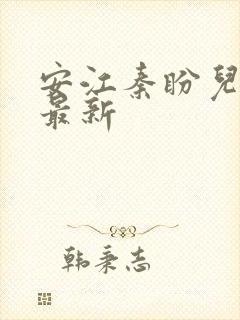 安江秦盼兒
最新
韩秉志